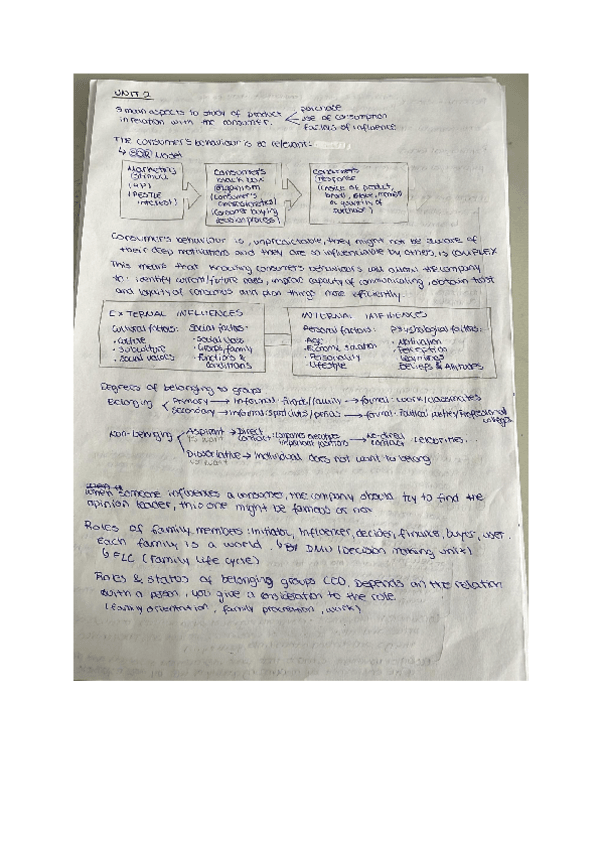 UNIT 2
3 main aspects to study of product purchase
in relation with the consumer. use of consumption
factors of influence
The consumer's behaviour is so relevant:
↳ SOR Model
Marketing stimuli (4P)
Consumer's black box organism (consumer's characteristics) (consumer buying decision process)
Consumer's response (choice of product, brand, store, moment or quantity of purchase)
Consumer's behaviour is, unpredictable, they might not be aware of
their deep motivations and they are so influenciable by others, is COMPLEX
This means that knowing consumer's behaviours will allow the company
to: identify current/future needs, improve capacity of communicating, obtain trust
and loyalty of consumers and plan things more efficiently.
EXTERNAL INFLUENCES
Cultural factors: Social factors:
· Culture · Social class
· Subculture · Groups, family
· Social values · Functions & conditions
INTERNAL INFLUENCES
Personal factors: Psychological factors:
· Age · Motivation
· Economic situation · Perception
· Personality · Learnings
· Lifestyle · Beliefs & Attitudes
Degrees of belonging to groups
Belonging Primary → Informal: friends/family → formal: work/classmates
Secondary → informal: sport clubs/ → formal: Political parties/Professional colleges
Non-belonging Aspirant → Direct contact: → No direct contact: celebrities...
Dissociative → Individual does not want to belong
When someone influences a consumer, the company should try to find the
opinion leader, this one might be famous or not
Roles of family members: Initiator, Influencer, decider, finance, buyer, user.
Each family is a world. ↳ BY DMU (Decision making unit)
↳ FLC (Family life cycle)
Roles & status of belonging groups Depends on the relation
with a person, you give a consideration to the role.
(family orientation, family procreation, work)